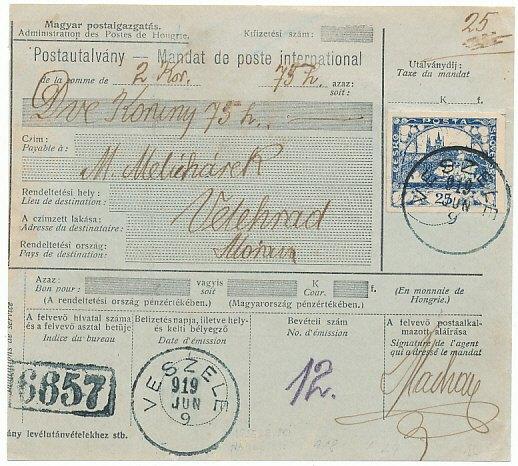 Magyar postaigazgatás.
Administration des Postes de Hongrie.
Kifizetési szám:
25
Postautalvány — Mandat de poste international
de la somme de 2 Kor. 75 h. azaz:
soit:
Dvě Koruny 75 h.
Utálványdíj:
Taxe du mandat
K f.
POSTA
ČESKO
SLOVENSKÁ
VESZELE
919
JUN
9
Czím:
Payable à:
M. Melichárek
Rendeltetési hely:
Lieu de destination:
Velehrad
A czímzett lakása:
Adresse du destinataire:
Morava
Rendeltetési ország:
Pays de destination:
Azaz:
Bon pour:
vagyis
soit
K
Cour.
f.
(A rendeltetési ország pénzértékében.) (Magyarország pénzértékében.)
(En monnaie de
Hongrie.)
A felvevő hivatal száma
és a felvevő asztal betűje
Indice du bureau
Belizetés napja, illetve hely-
és kelti bélyegző
Date d'émission
Bevételi szám
No. d'émission
A felvevő postaalkal-
mazott aláírása
Signature de l'agent
qui a dressé le mandat
6857
VESZELE
919
JUN
9
12.
de service
ány levélutánvételekhez stb.